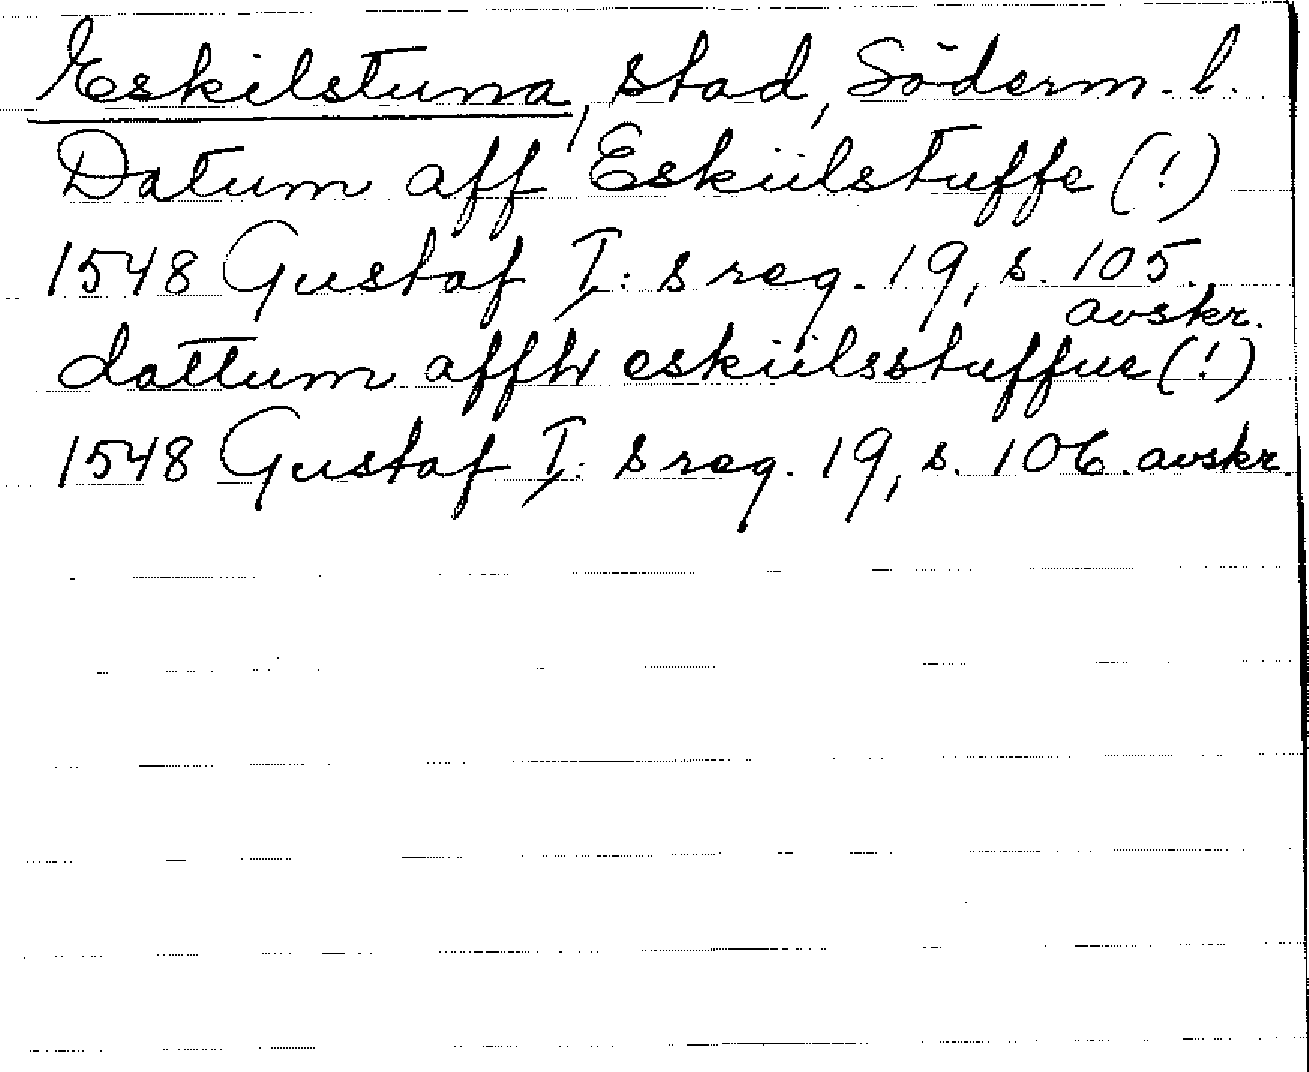 Eskilstuna, stad, Söderm. l.
Datum aff Eskiilstuffe (!)
1548 Gustaf I:s reg. 19, s. 105.
avskr.
dattum affh eskiilsstuffue (!)
1548 Gustaf I:s reg. 19, s. 106. avskr.